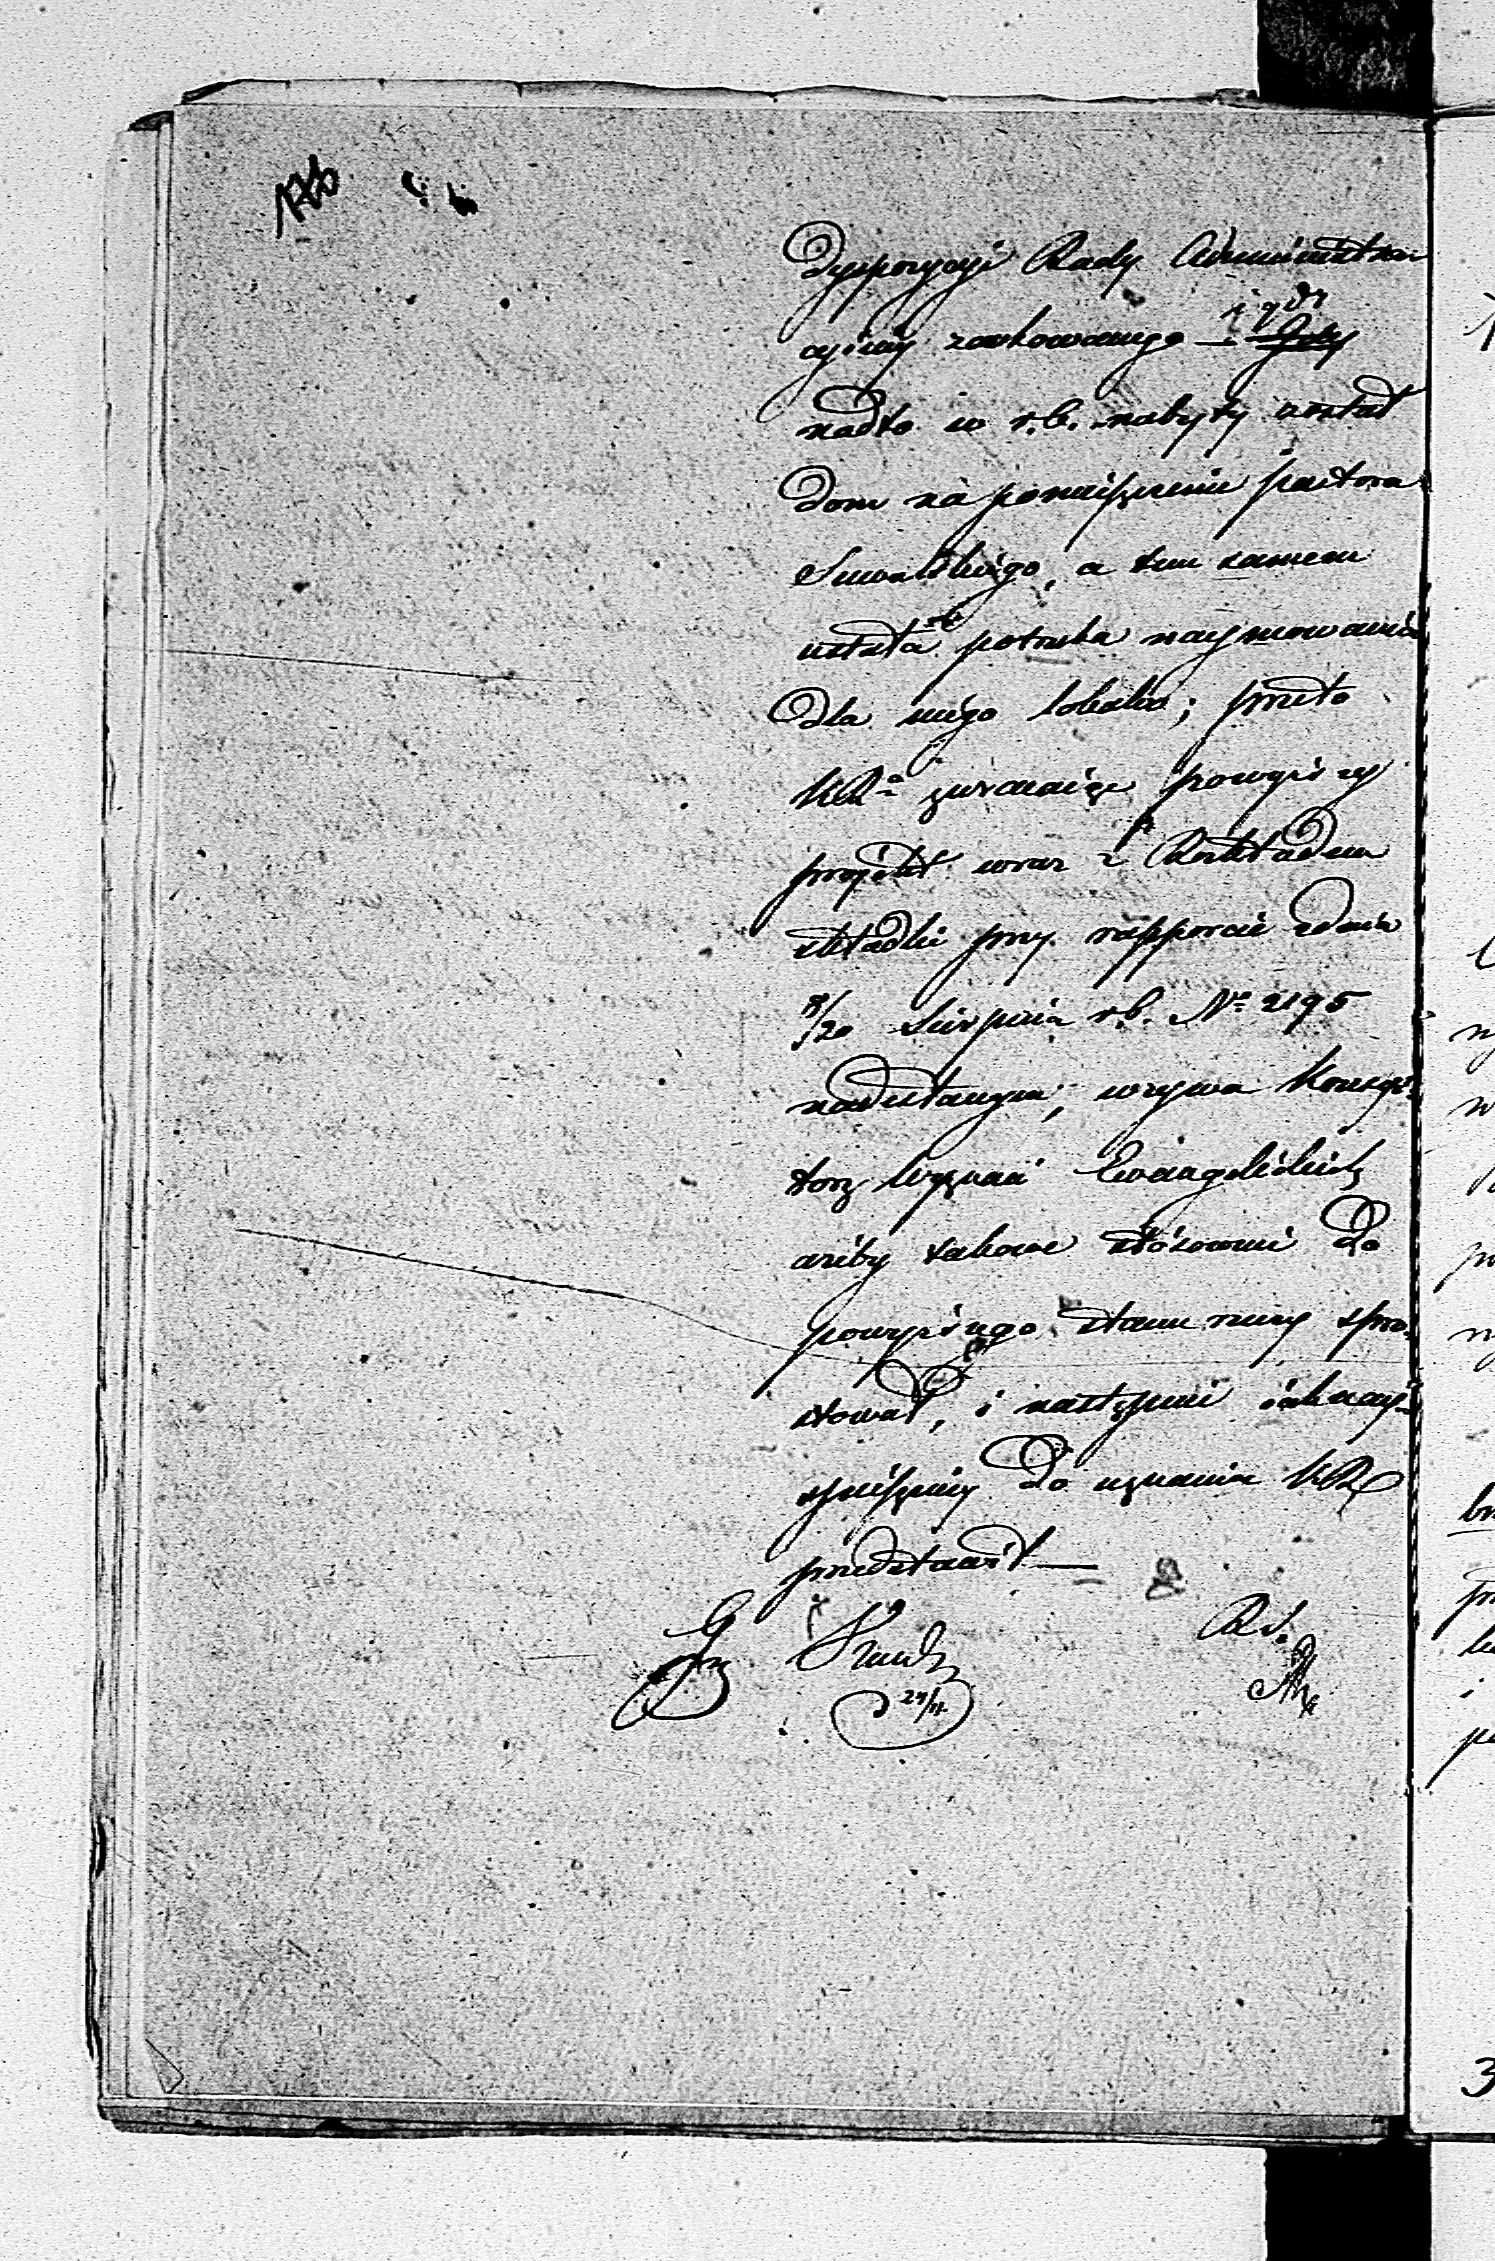 Dyspozycyi Rady Administra
cyiney zachowanego i gdy
nadto w r.b. nabyty został
dom na pomieszczenie pastora
Suwalskiego, a tem samem
ustała potrzeba naymowania
dla niego lokalu; przeto
KR^a zwracaiąc powyższy
projekt wraz z Rozkładem
składki przy rapporcie z dnia
8/20 Sierpnia r.b. N^o 2195
nadesłanym, wzywa Konsys-
torz Wyznań Ewangelickich
ażeby takowe stósownie do
powyższego stanu rzeczy spro-
stował, i następnie iaknay-
spieszniey do uznania KR
przedstawił —
27/11